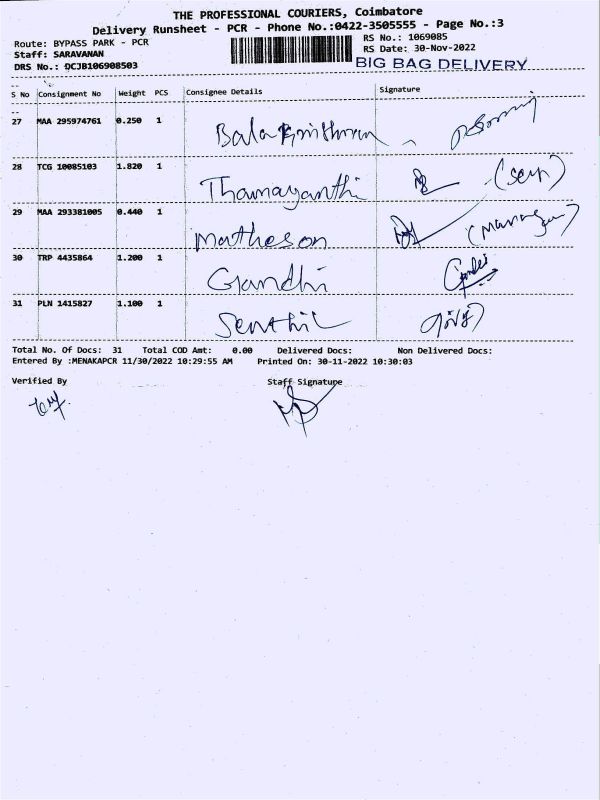 THE PROFESSIONAL COURIERS, Coimbatore
Delivery Runsheet - PCR - Phone No.:0422-3505555 - Page No.:3
Route: BYPASS PARK - PCR
RS No.: 1069085
Staff: SARAVANAN
RS Date: 30-Nov-2022
DRS No.: DCJB106908503
BIG BAG DELIVERY
S No Consignment No Weight PCS Consignee Details Signature
27 MAA 295974761 0.250 1
28 TCG 10085103 1.820 1 Thamayanthi
29 MAA 293381005 0.440 1 Matheson
30 TRP 4435864 1.200 1 Gandhi
31 PLN 1415827 1.100 1 Senthil
Total No. Of Docs: 31 Total COD Amt: 0.00 Delivered Docs: Non Delivered Docs:
Entered By :MENAKAPCR 11/30/2022 10:29:55 AM Printed On: 30-11-2022 10:30:03
Verified By Staff Signature